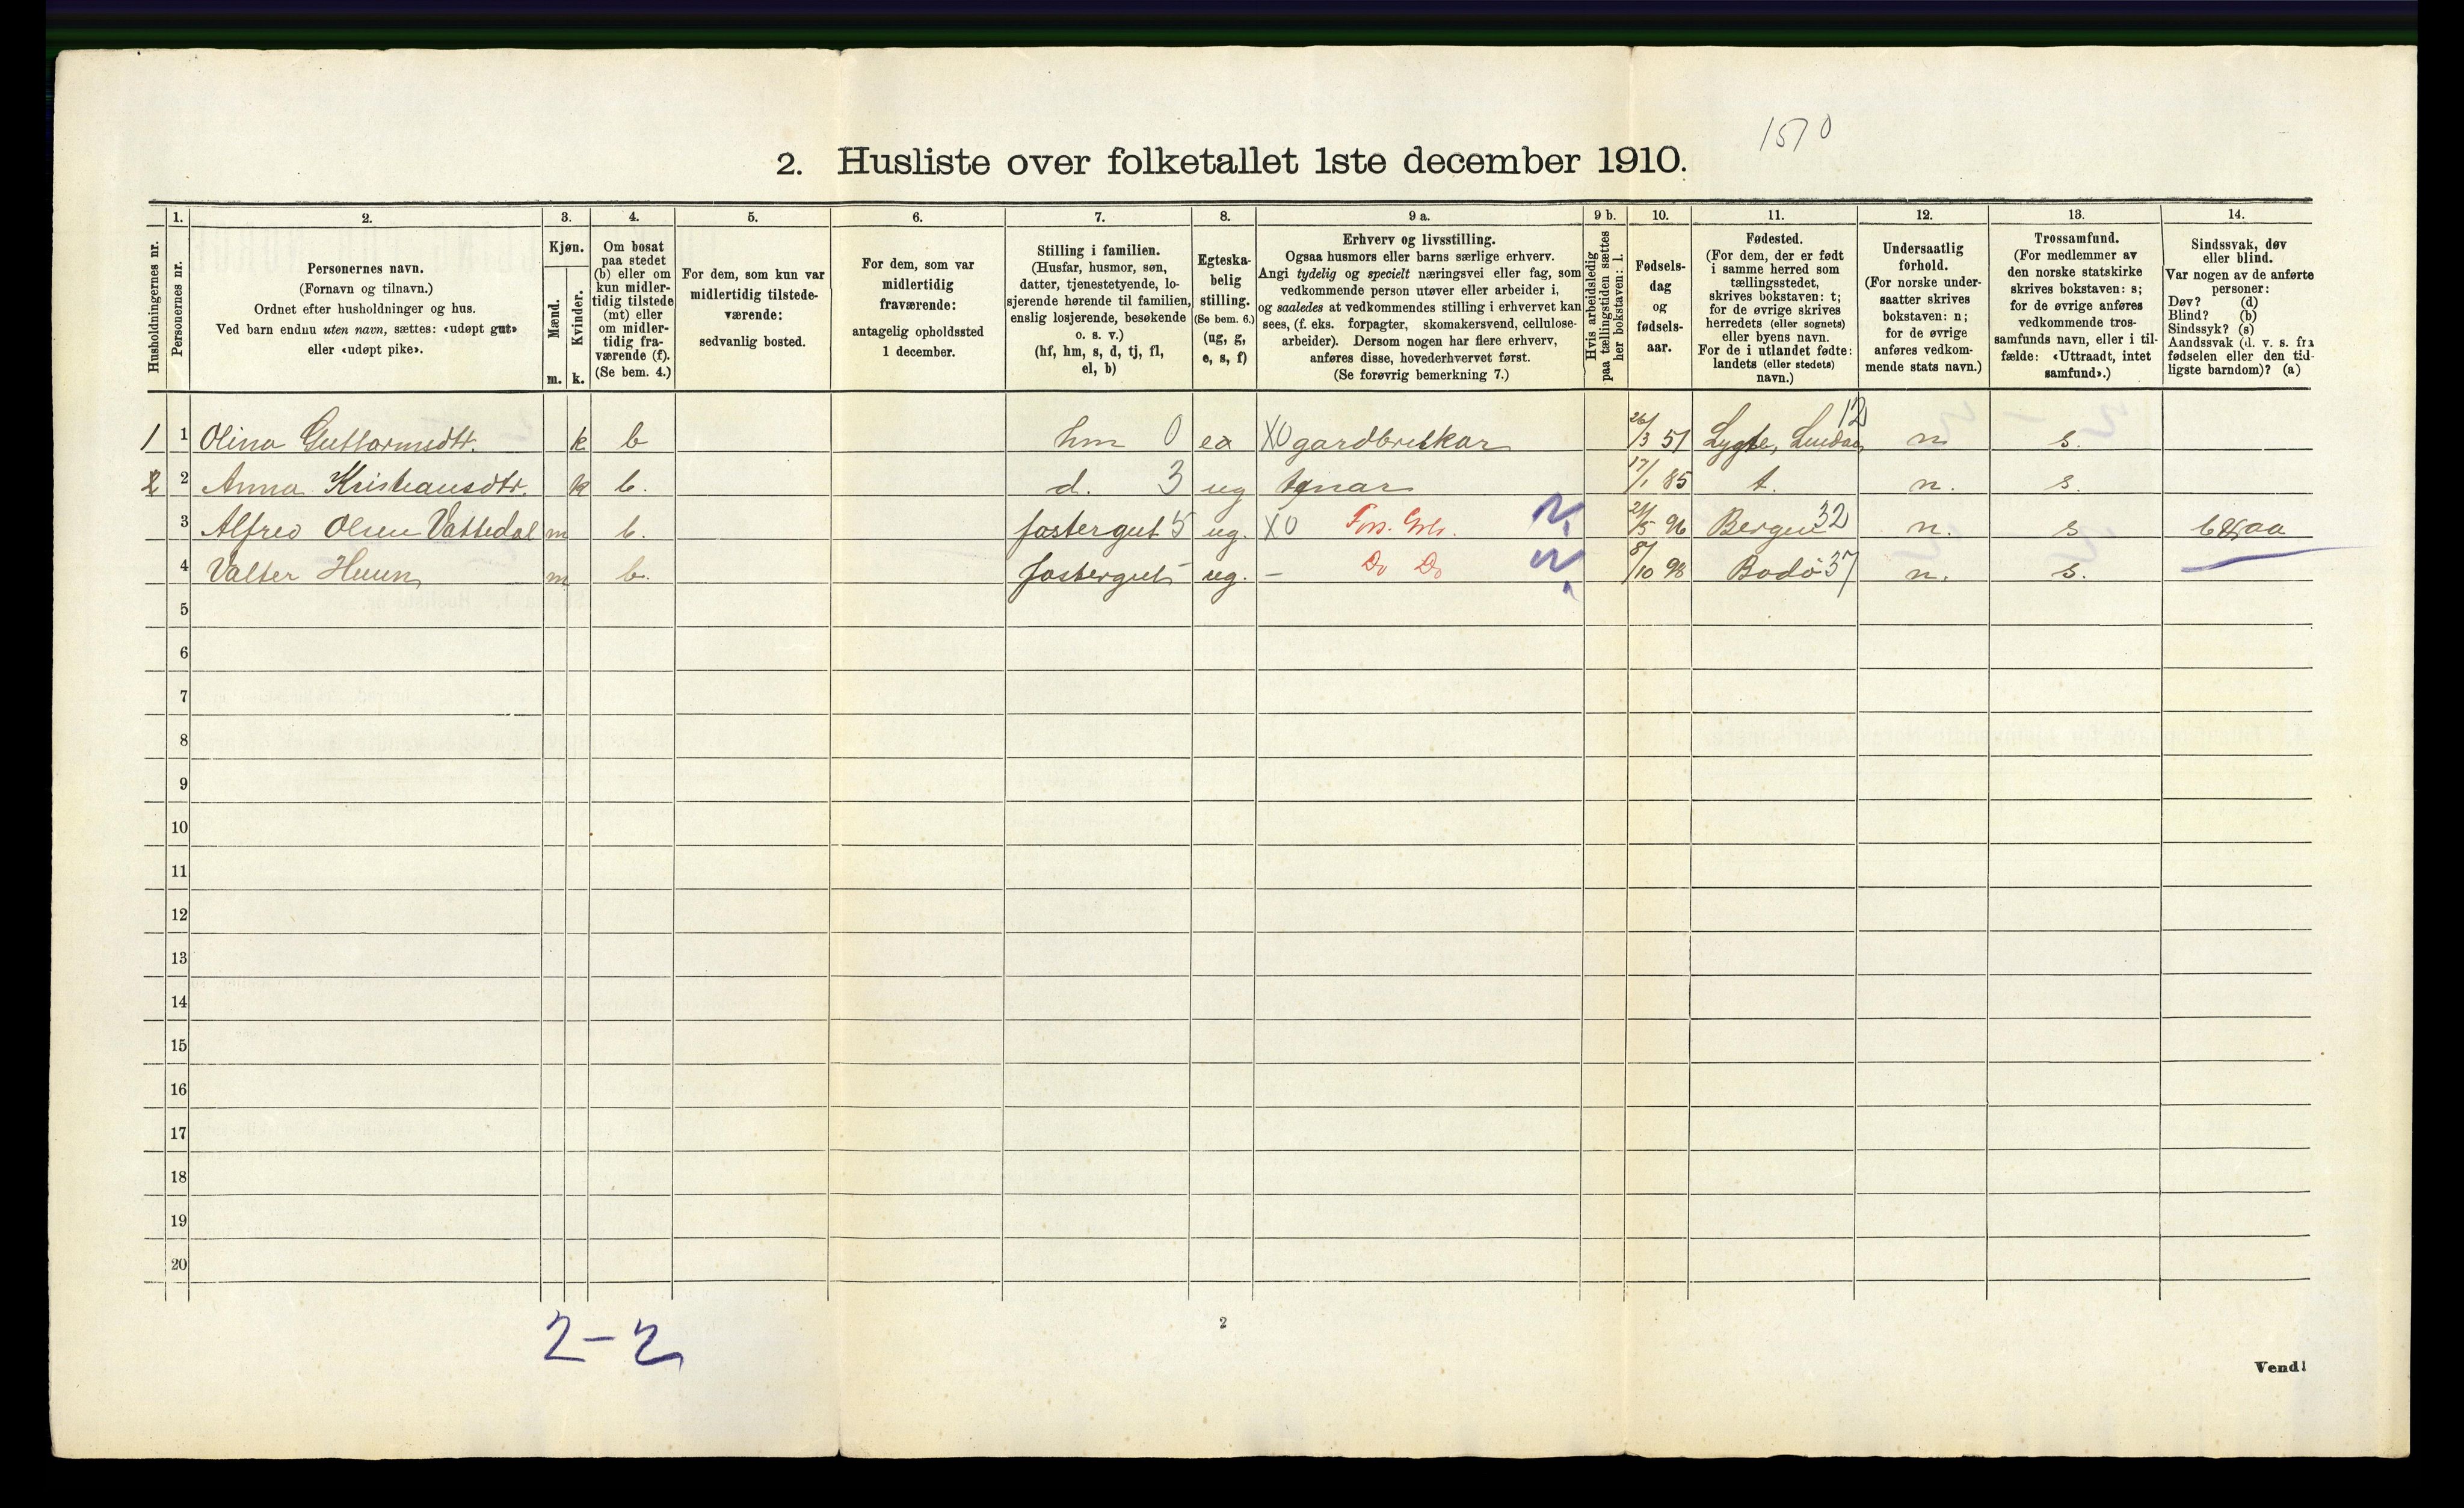 1570
2. Husliste over folketallet 1ste december 1910.
Husholdningernes nr.
1.
Personernes nr.
2.
Personernes navn.
(Fornavn og tilnavn.)
Ordnet efter husholdninger og hus.
Ved barn endnu uten navn, sættes: «udøpt gut»
eller «udøpt pike».
3.
Kjøn.
Mænd.
m.
Kvinder.
k.
4.
Om bosat
paa stedet
(b) eller om
kun midler-
tidig tilstede
(mt) eller
om midler-
tidig fra-
værende (f).
(Se bem. 4.)
5.
For dem, som kun var
midlertidig tilstede-
værende:
sedvanlig bosted.
6.
For dem, som var
midlertidig
fraværende:
antagelig opholdssted
1 december.
7.
Stilling i familien.
(Husfar, husmor, søn,
datter, tjenestetyende, lo-
sjerende hørende til familien,
enslig losjerende, besøkende
o. s. v.)
(hf, hm, s, d, tj, fl,
el, b)
8.
Egteska-
belig
stilling.
(Se bem. 6.)
(ug, g,
e, s, f)
9 a.
Erhverv og livsstilling.
Ogsaa husmors eller barns særlige erhverv.
Angi tydelig og specielt næringsvei eller fag, som
vedkommende person utøver eller arbeider i,
og saaledes at vedkommendes stilling i erhvervet kan
sees, (f. eks. forpagter, skomakersvend, cellulose-
arbeider). Dersom nogen har flere erhverv,
anføres disse, hovederhvervet først.
(Se forøvrig bemerkning 7.)
9 b.
Hvis arbeidsledig
paa tællingstiden sættes
her bokstaven: l.
10.
Fødsels-
dag
og
fødsels-
aar.
11.
Fødested.
(For dem, der er født
i samme herred som
tællingsstedet,
skrives bokstaven: t;
for de øvrige skrives
herredets (eller sognets)
eller byens navn.
For de i utlandet fødte:
landets (eller stedets)
navn.)
12.
Undersaatlig
forhold.
(For norske under-
saatter skrives
bokstaven: n;
for de øvrige
anføres vedkom-
mende stats navn.)
13.
Trossamfund.
(For medlemmer av
den norske statskirke
skrives bokstaven: s;
for de øvrige anføres
vedkommende tros-
samfunds navn, eller i til-
fælde: «Uttraadt, intet
samfund».)
14.
Sindssvak, døv
eller blind.
Var nogen av de anførte
personer:
Døv? (d)
Blind? (b)
Sindssyk? (s)
Aandssvak (d. v. s. fra
fødselen eller den tid-
ligste barndom)? (a)
1 1 Olina Guttormsdtr. k b hm 0 ea X0 gardbrukar 26/3 51 Lygte, Lindaas 12 n s.
2 2 Anna Kristiansdtr. k b. d. 3 ug 17/1 85 t. n. s.
3 Alfred Olsen Vattedal m b. fostergut 5 ug. X0 21/5 96 Bergen 32 n. s
4 Valter Huun m b. fostergut ug. – Do Do 8/10 98 Bodø 37 n. s.
5
6
7
8
9
10
11
12
13
14
15
16
17
18
19
20
2 – 2
2
Vend!